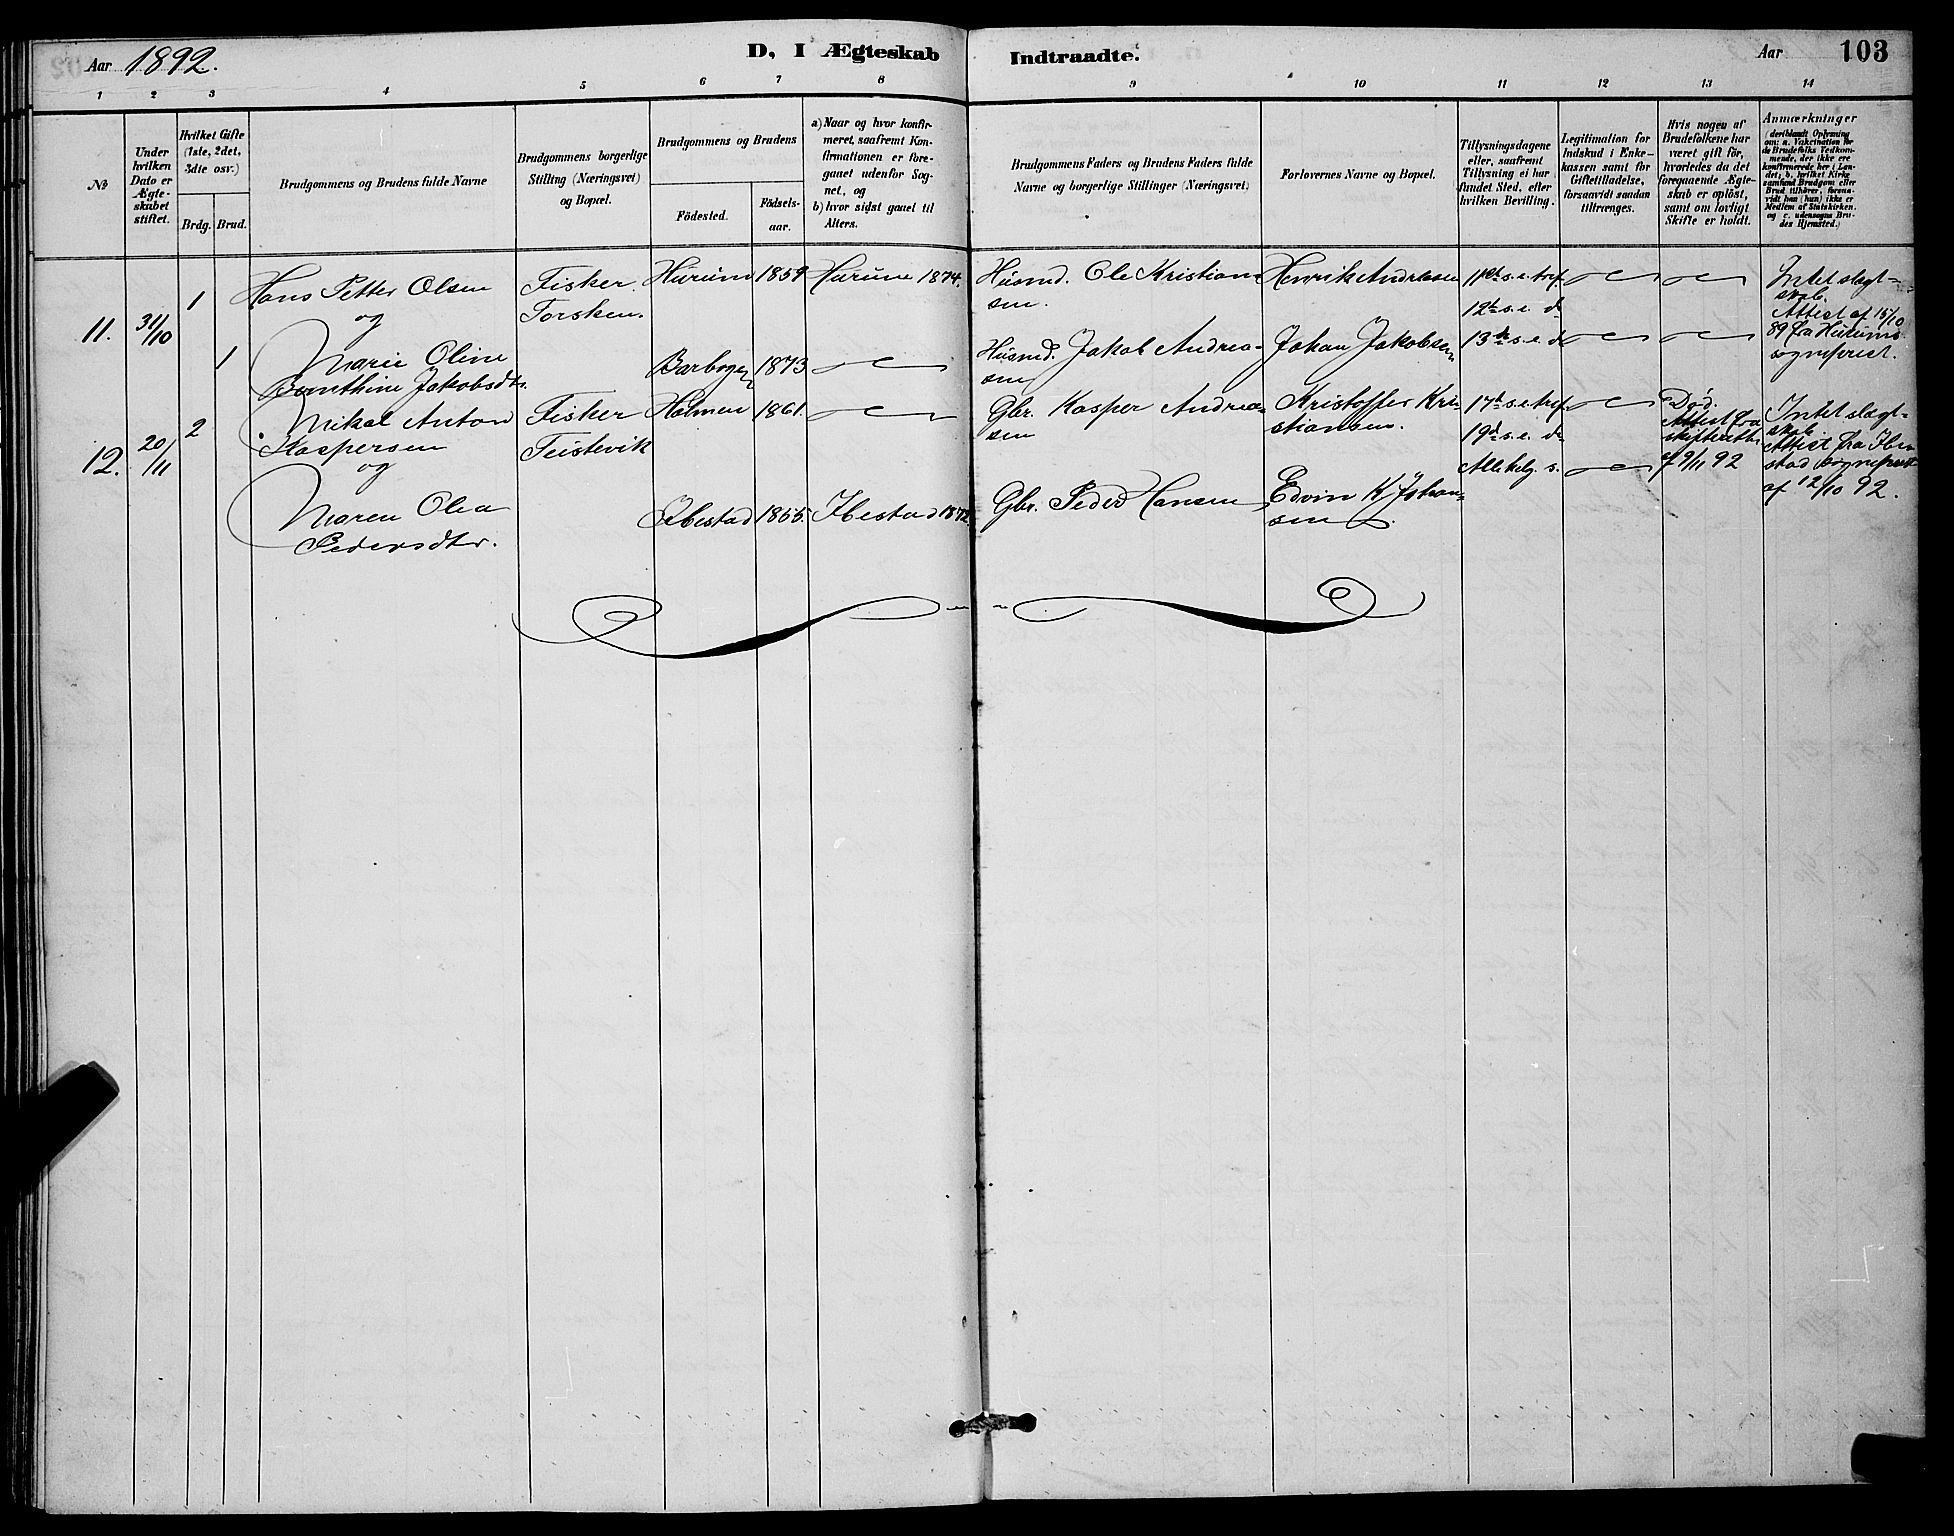 Aar 1892.
D, I Ægteskab Indtraadte.
Aar 103
1 2 3 4 5 6 7 8 9 10 11 12 13 14
No
Under hvilken Dato er Ægteskabet stiftet.
Hvilket Gifte (1ste, 2det, 3die osv.)
Brdg. Brud.
Brudgommens og Brudens fulde Navne
Brudgommens borgerlige Stilling (Næringsvei) og Bopæl.
Brudgommens og Brudens
Födested.
Födsels-aar.
a) Naar og hvor konfirmeret, saafremt Konfirmationen er foregaaet udenfor Sognet, og
b) hvor sidst gaaet til Alters.
Brudgommens Faders og Brudens Faders fulde Navne og borgerlige Stillinger (Næringsvei)
Forlovernes Navne og Bopæl.
Tillysningsdagene eller, saafremt Tillysning ei har fundet Sted, efter hvilken Bevilling.
Legitimation for Indskud i Enkekassen samt for Giftetilladelse, forsaavidt saadan tiltrænges.
Hvis nogen af Brudefolkene har været gift før, hvorledes da det foregaaende Ægteskab er opløst, samt om lovligt Skifte er holdt.
Anmærkninger
(deriblandt Oplysning om: a. Vakcination for de Brudefolks Vedkommende, der ikke ere konfirmerede her i Landet; b. hvilket Kirkesamfund Brudgom eller Brud tilhører, forsaavidt han (hun) ikke er Medlem af Statskirken, og c. udensogns Brudes Hjemsted.)
11. 31/10 1 Hans Petter Olsen Fisker. Hurum 1859 Hurum 1874. Husmd. Ole Kristian- Henrik Andreasen 11te s. e. tref. Intet slægt-
og Torsken. sen. 12te s. e. do skab.
Attest af 15/10
1 Marie Oline Husmd. Jakob Andrea- Johan Jakobsen 13de s. e. do 89 fra Hurums
Jakobsdtr. Barbogen 1873 sen sognepræst.
12. 20/11 2 Mikal Anton Fisker Holmen 1861. Gbr. Kasper Andrea- Kristoffer Kri- 17de s. e. tref. Død. Intet slægt-
Kaspersen Teistevik sen stiansen. 19de s. e. do Attest fra skab.
og Alle helg. s. skifteretten Attest fra Ibe-
af 9/11 92 stad sognepræst
Maren Olea Ibestad 1855. Ibestad 1872. Gbr. Peder Hansen Edvin K. Johan- af 12/10 92.
Pedersdtr. sen.